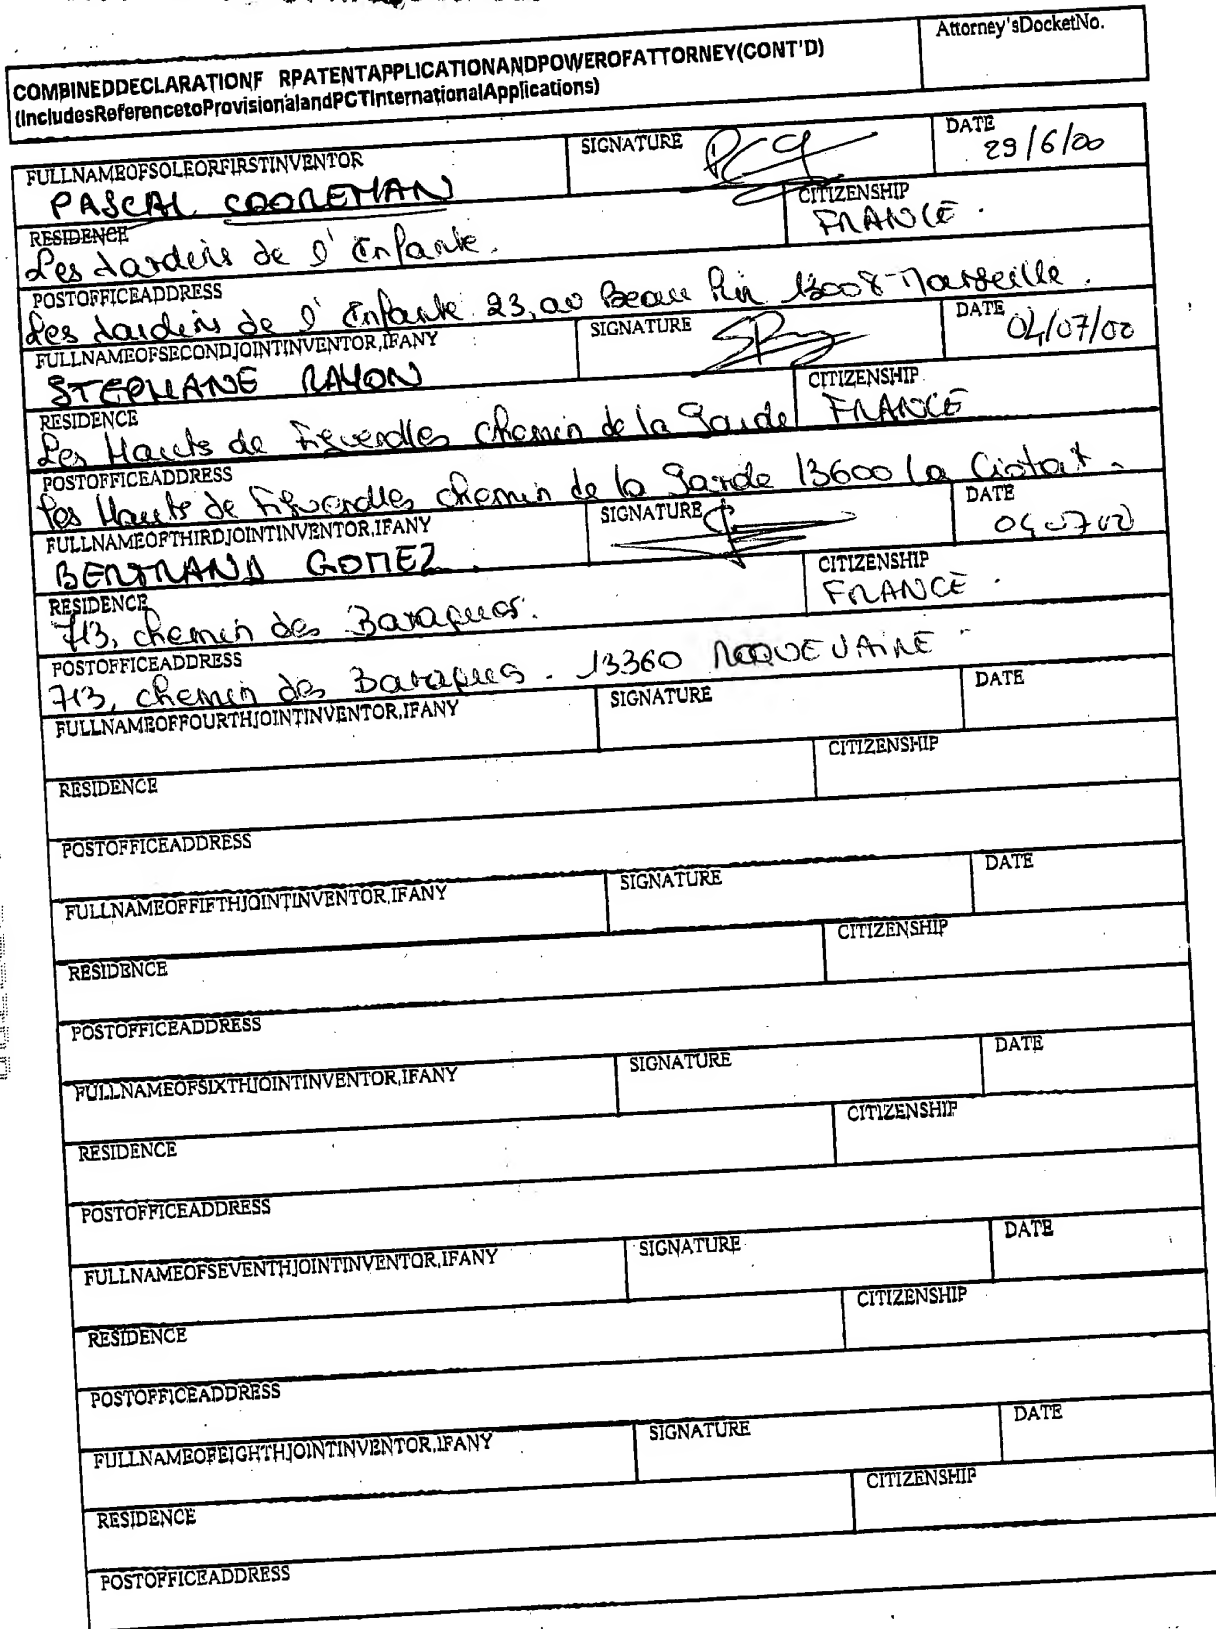 COMBINEDDECLARATIONF RPATENTAPPLICATIONANDPOWEROFATTORNEY(CONT'D)
(IncludesReferencetoProvisionalandPCTInternationalApplications)
Attorney'sDocketNo.
FULLNAMEOFSOLEORFIRSTINVENTOR
PASCAL COOREMAN
SIGNATURE
DATE
29/6/00
RESIDENCE
Les Jardins de l'Enfante.
CITIZENSHIP
FRANCE.
POSTOFFICEADDRESS
Les Jardins de l'Enfante 23, av Beau Pin 13008 Marseille.
FULLNAMEOFSECONDJOINTINVENTOR,IFANY
STEPHANE RAYON
SIGNATURE
DATE
04/07/00
RESIDENCE
Les Hauts de Figuerolles chemin de la Garde
CITIZENSHIP
FRANCE
POSTOFFICEADDRESS
Les Hauts de Figuerolles chemin de la Garde 13600 La Ciotat.
FULLNAMEOFTHIRDJOINTINVENTOR,IFANY
BERTRAND GOMEZ.
SIGNATURE
DATE
04 07 00
RESIDENCE
713, chemin des Baraques.
CITIZENSHIP
FRANCE.
POSTOFFICEADDRESS
713, chemin des Baraques. 13360 ROQUEVAIRE
FULLNAMEOFFOURTHJOINTINVENTOR,IFANY
SIGNATURE
DATE
RESIDENCE
CITIZENSHIP
POSTOFFICEADDRESS
FULLNAMEOFFIFTHJOINTINVENTOR,IFANY
SIGNATURE
DATE
RESIDENCE
CITIZENSHIP
POSTOFFICEADDRESS
FULLNAMEOFSIXTHJOINTINVENTOR,IFANY
SIGNATURE
DATE
RESIDENCE
CITIZENSHIP
POSTOFFICEADDRESS
FULLNAMEOFSEVENTHJOINTINVENTOR,IFANY
SIGNATURE
DATE
RESIDENCE
CITIZENSHIP
POSTOFFICEADDRESS
FULLNAMEOFEIGHTHJOINTINVENTOR,IFANY
SIGNATURE
DATE
RESIDENCE
CITIZENSHIP
POSTOFFICEADDRESS